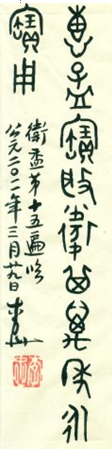 惠孟寶般衛其萬年永
寶用
衛盉第十五遍臨
公元二〇二一年三月廿日